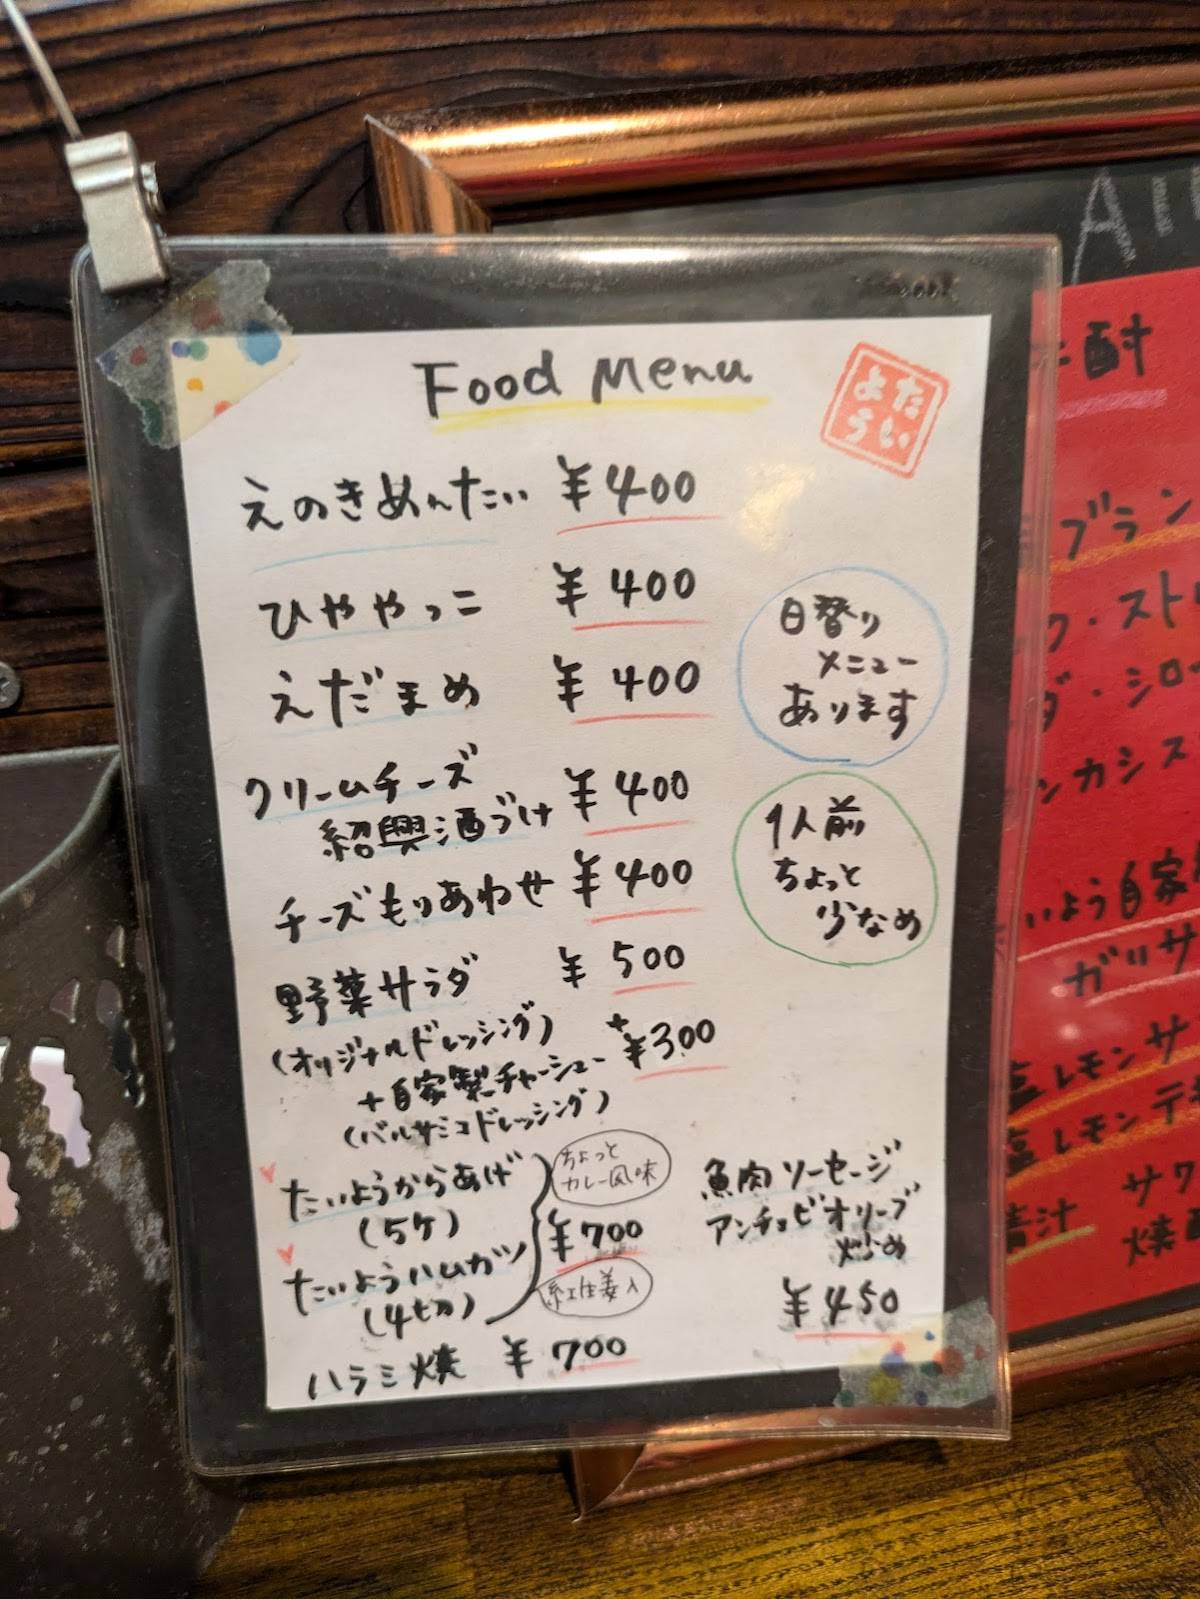 Food Menu
たい
よう
えのきめんたい ¥400
ひややっこ ¥400
えだまめ ¥400
クリームチーズ
紹興酒づけ ¥400
チーズもりあわせ ¥400
野菜サラダ ¥500
(オリジナルドレッシング)
+自家製チャーシュー +¥300
(バルサミコドレッシング)
たいようからあげ
(5ケ)
ちょっと
カレー風味
¥700
たいようハムカツ
(4切)
紅生姜入
ハラミ焼 ¥700
日替り
メニュー
あります
1人前
ちょっと
少なめ
魚肉ソーセージ
アンチョビオリーブ
炒め
¥450
A
酎
ブラン
ク・ストレ
ダ・シロッ
カシス
いよう自家
ガリサ
塩レモンサ
塩レモンテキ
青汁 サワ
焼酎